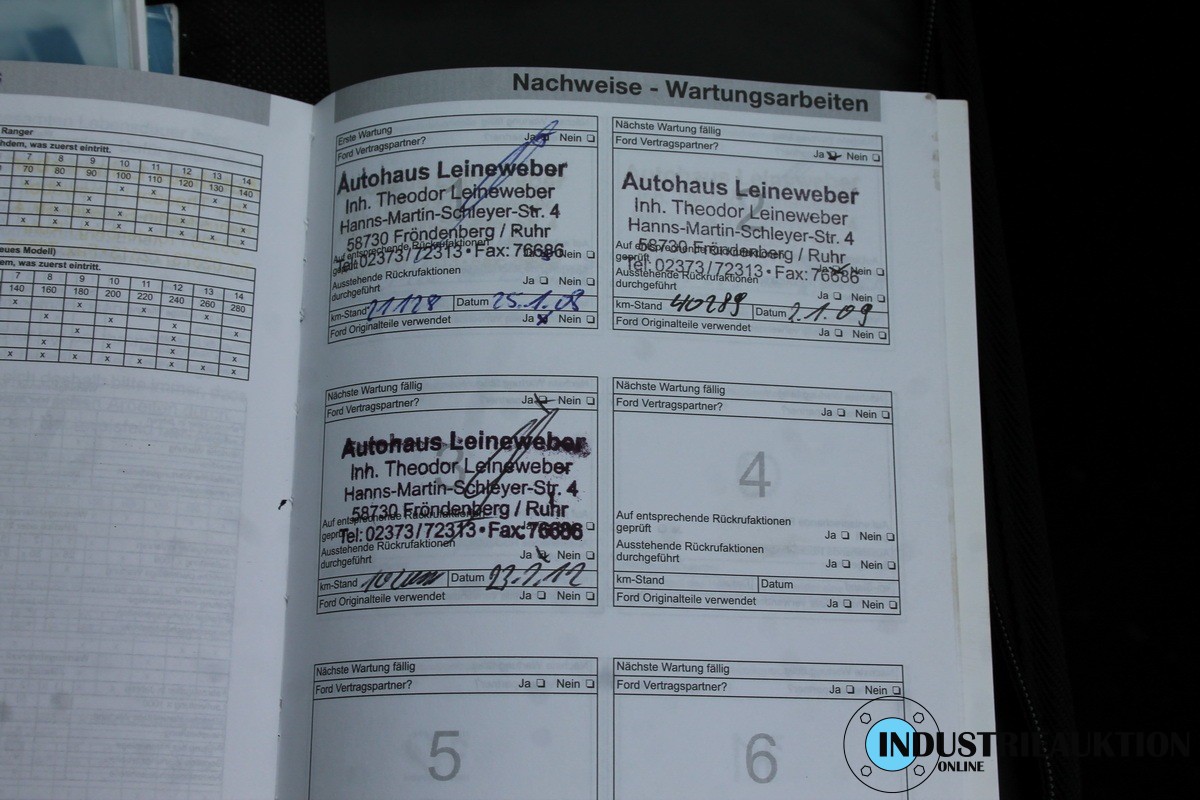 Nachweise - Wartungsarbeiten
Ranger
hdem, was zuerst eintritt.
7 8 9 10 11 12 13 14
70 80 90 100 110 120 130 140
x x x x x x
x x x
x x x x
x x x x
eues Modell)
dem, was zuerst eintritt.
7 8 9 10 11 12 13 14
140 160 180 200 220 240 260 280
Erste Wartung
Ford Vertragspartner? Ja Nein
Autohaus Leineweber
Inh. Theodor Leineweber
Hanns-Martin-Schleyer-Str. 4
58730 Fröndenberg / Ruhr
Auf entsprechende Rückrufaktionen
geprüft Nein
Tel: 02373/72313 • Fax: 76686
Ausstehende Rückrufaktionen
durchgeführt Ja Nein
km-Stand 21128 Datum 25.1.08
Ford Originalteile verwendet Ja Nein
Nächste Wartung fällig
Ford Vertragspartner? Ja Nein
2
Autohaus Leineweber
Inh. Theodor Leineweber
Hanns-Martin-Schleyer-Str. 4
58730 Fröndenberg / Ruhr
Auf entsprechende Rückrufaktionen
geprüft Ja Nein
Tel: 02373/72313 • Fax: 76686
Ausstehende Rückrufaktionen
durchgeführt Ja Nein
km-Stand 40289 Datum 2.1.09
Ford Originalteile verwendet Ja Nein
Nächste Wartung fällig
Ford Vertragspartner? Ja Nein
3
Autohaus Leineweber
Inh. Theodor Leineweber
Hanns-Martin-Schleyer-Str. 4
58730 Fröndenberg / Ruhr
Auf entsprechende Rückrufaktionen
geprüft Ja
Tel: 02373/72313 • Fax: 76686
Ausstehende Rückrufaktionen
durchgeführt Ja Nein
km-Stand Datum
Ford Originalteile verwendet Ja Nein
Nächste Wartung fällig
Ford Vertragspartner? Ja Nein
4
Auf entsprechende Rückrufaktionen
geprüft Ja Nein
Ausstehende Rückrufaktionen
durchgeführt Ja Nein
km-Stand Datum
Ford Originalteile verwendet Ja Nein
Nächste Wartung fällig
Ford Vertragspartner? Ja Nein
5
Nächste Wartung fällig
Ford Vertragspartner? Ja Nein
6
INDUSTRIEAUKTION
ONLINE